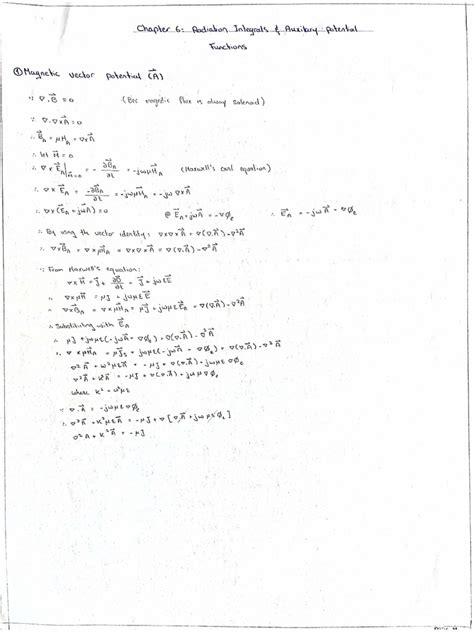 Chapter 6: Radiation Integrals & Auxilary potential
Functions
① Magnetic vector potential (A⃗)
∵ ∇.B⃗ = 0 (Bec magnetic flux is always solenoid)
∵ ∇.∇×A⃗ = 0
∴ B⃗_A = μH_A = ∇×A⃗
∴ let M⃗ = 0
∴ ∇×E⃗_A|_M⃗=0 = -∂B⃗_A/∂t = -jωμH⃗_A (Maxwell's curl equation)
∴ ∇×E⃗_A = -∂B_A/∂t = -jωμH⃗_A = -jω ∇×A⃗
∴ ∇×(E⃗_A + jωA⃗) = 0 @ E⃗_A + jωA⃗ = -∇φ_e ∴ E⃗_A = -jωA⃗ - ∇φ_e
∴ By using the vector identity: ∇×∇×A⃗ = ∇(∇.A⃗) - ∇²A⃗
∴ ∇×B⃗_A = ∇×μH⃗_A = ∇×∇×A⃗ = ∇(∇.A⃗) - ∇²A⃗
∵ From Maxwell's equation:
∇×H⃗ = J⃗ + ∂D⃗/∂t = J⃗ + jωεE⃗
∴ ∇×μH⃗ = μJ + jωμεE⃗
∴ ∇×B⃗_A = ∇×μH⃗_A = μJ + jωμεE⃗_A = ∇(∇.A⃗) - ∇²A⃗
∴ Substituting with E⃗_A
∴ μJ + jωμε(-jωA⃗ - ∇φ_e) = ∇(∇.A⃗) - ∇²A⃗
∴ ∇×μH⃗_A = μJ⃗ + jωμε(-jωA⃗ - ∇φ_e) = ∇(∇.A⃗) - ∇²A⃗
∇²A⃗ + ω²μεA⃗ = -μJ + ∇(∇.A⃗) + jωμε∇φ_e
∇²A⃗ + K²A⃗ = -μJ + ∇(∇.A⃗) + jωμε∇φ_e
where K² = ω²με
∵ ∇.A⃗ = -jωμεφ_e
∴ ∇²A⃗ + K²A⃗ = -μJ + ∇[∇.A⃗ + jωμεφ_e]
∇²A + K²A⃗ = -μJ